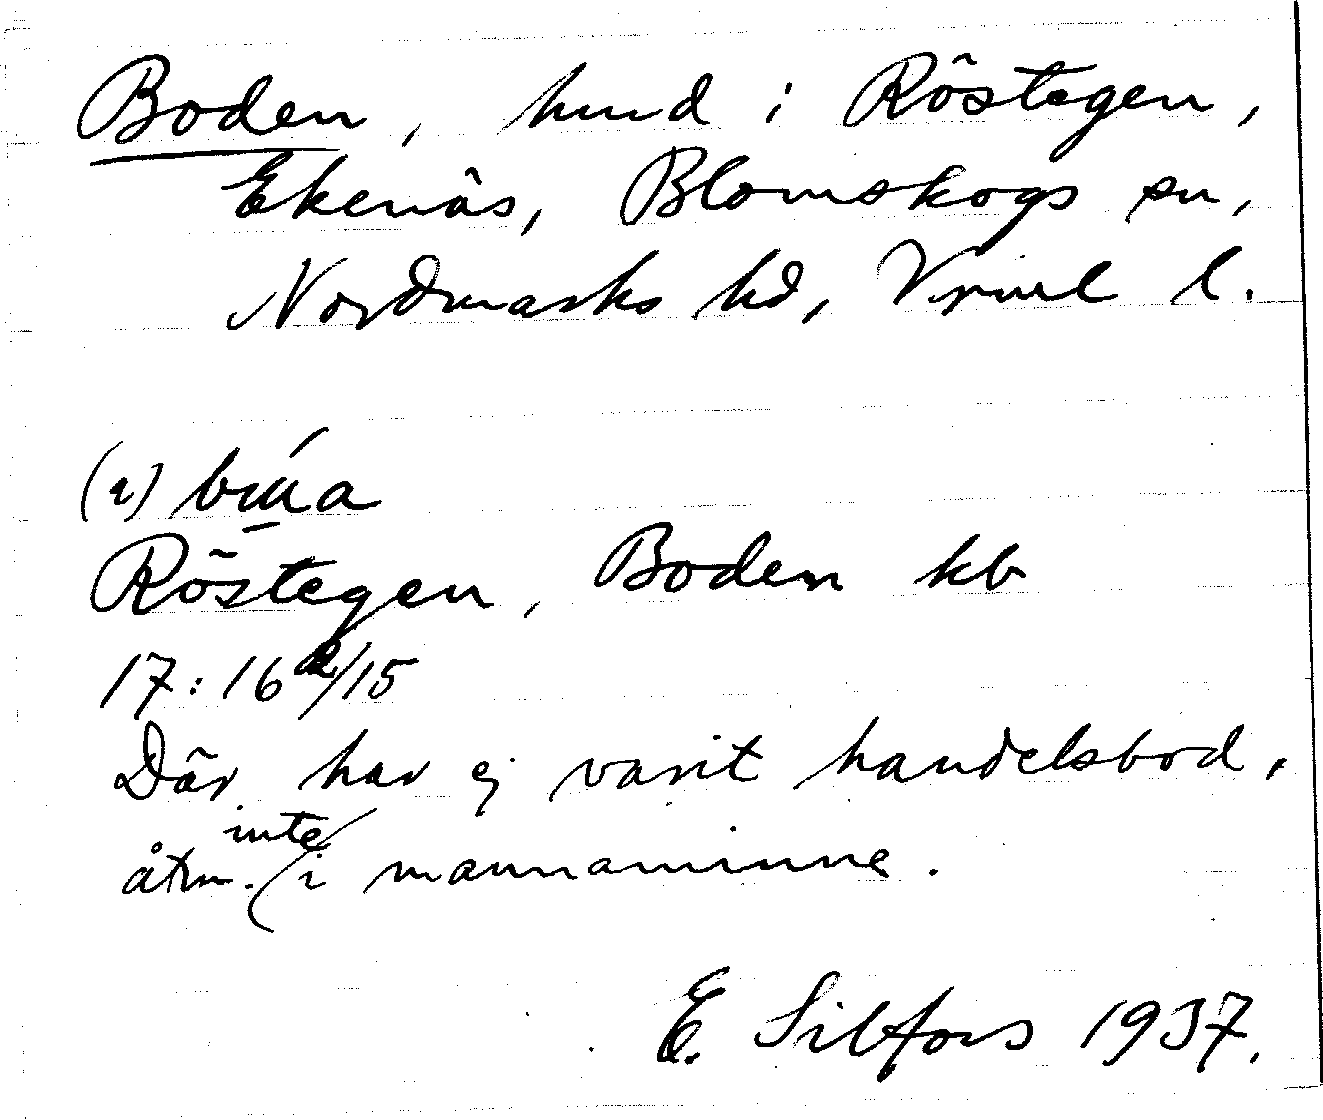 Boden, hmd i Röstegen,
Ekenäs, Blomskogs sn,
Nordmarks hd, Vrml l.
(i) búa
Röstegen, Boden kb
17:16 /15
Där har ej varit handelsbod,
åtm. inte i mannaminne.
E. Silfors 1937.